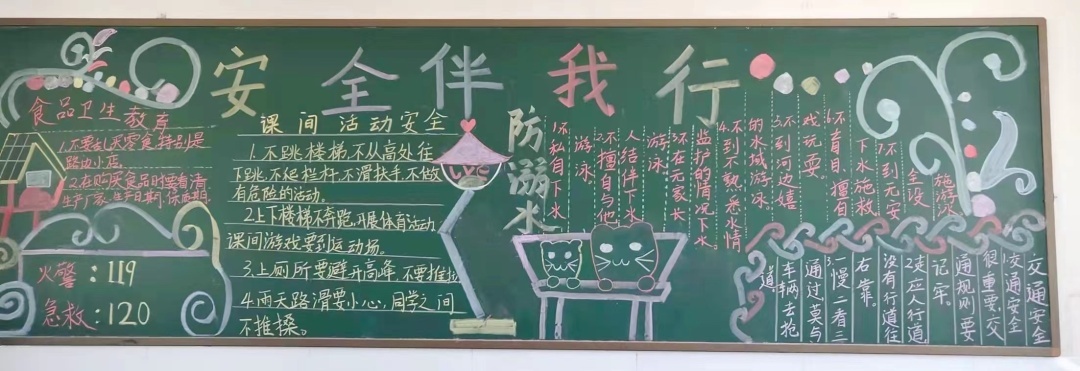 安全伴我行
食品卫生教育
1.不要乱买零食,特别是
路边小店。
2.在购买食品时要看清
生产厂家、生产日期、保质期。
火警：119
急救：120
课间活动安全
1.不跳楼梯,不从高处往
下跳,不爬栏杆,不滑扶手,不做
有危险的活动。
2.上下楼梯不奔跑,开展体育活动
课间游戏要到运动场。
3.上厕所要避开高峰,不要推拉
4.雨天路滑要小心,同学之间
不推搡。
LOVE
防溺水
1.不
私自下水
游泳。
2.不擅自与他
人结伴下水
游泳
3.不在无家长
监护的情况下水
4.不到不熟悉水情
的水域游泳。
5.不到河边嬉
戏玩耍。
6.不盲目、擅自
下水施救
7.不到无安
全设
施游泳
交通安全
1.交通安全
很重要,交
通规则要
记牢。
2.走应人行道
没有行道往
右靠。
3.一慢二看三
通过莫与
车辆去抢
道。